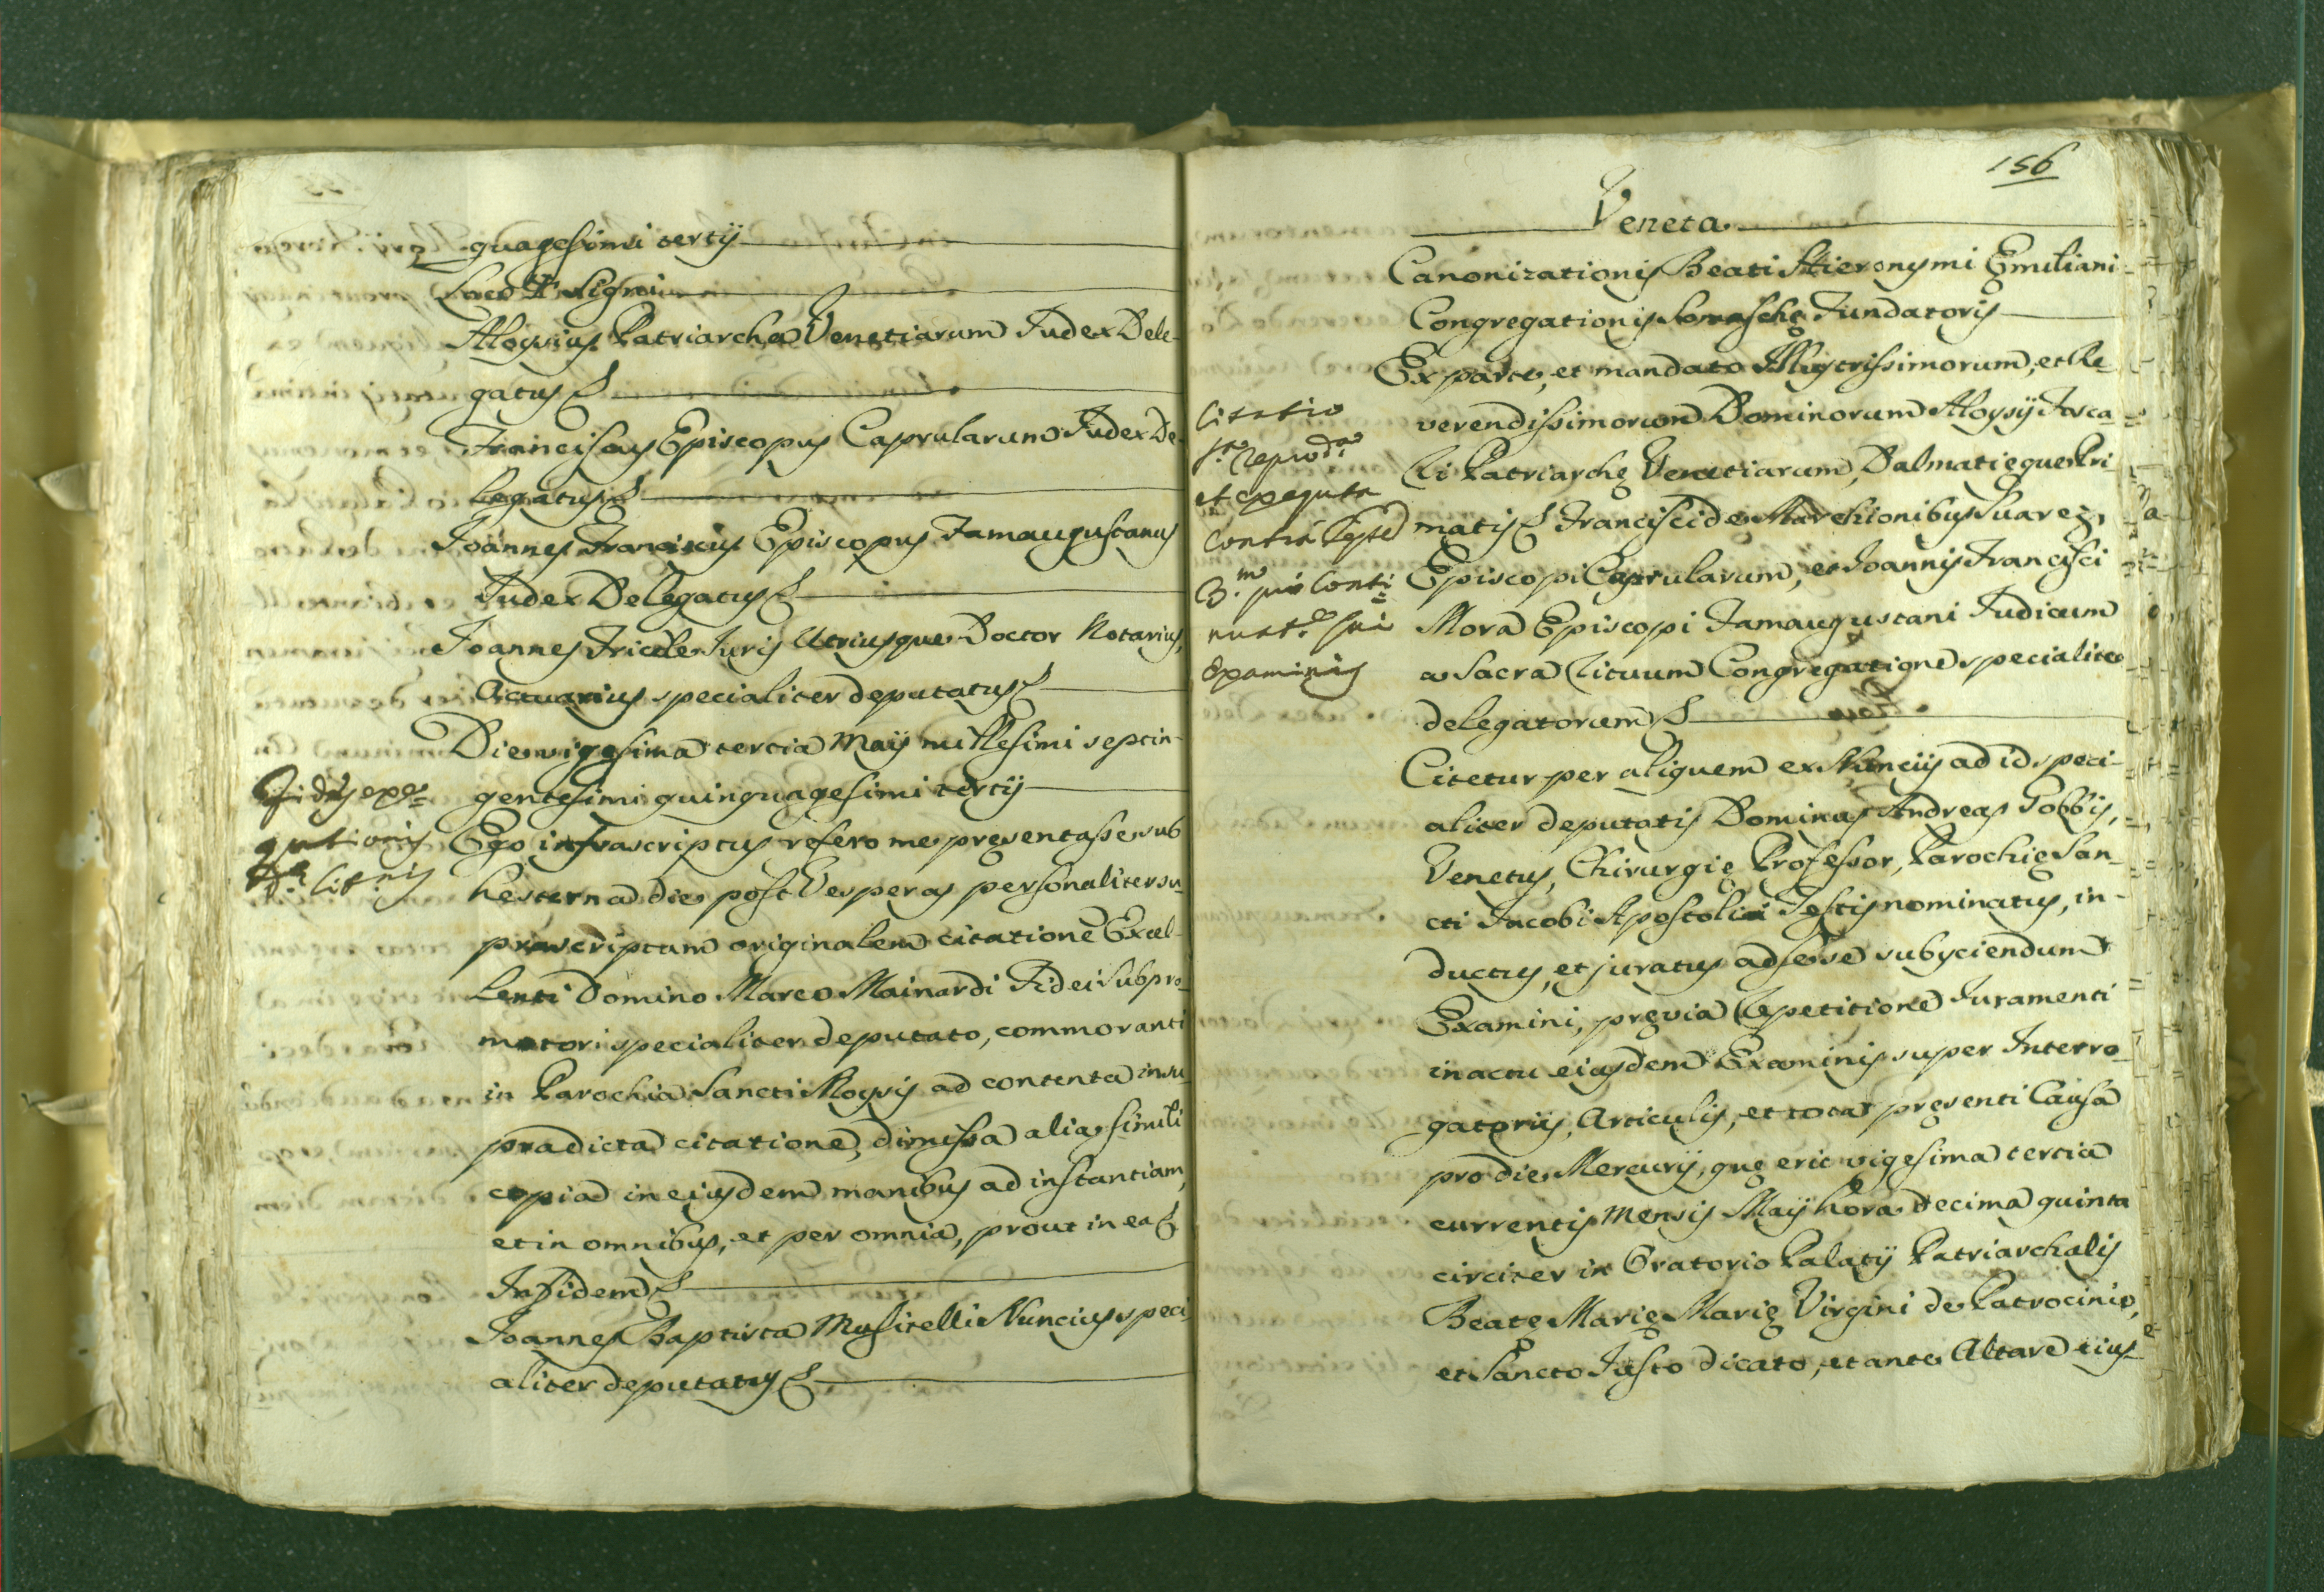 quagesimi tertij
Loco + Signi
Aloysius Patriarcha Venetiarum Judex Dele-
gatus
Franciscus Episcopus Caprularum Judex De-
legatus
Joannes Franciscus Episcopus Famaugustanus
Judex Delegatus
Joannes Fricele Juris Utriusque Doctor Notarius,
Actuarius specialiter deputatus
Die vigesima tertia Maij millesimi septin-
gentesimi quinquagesimi tertij
Ego infrascriptus refero me presentasse sub
hesterna die post Vesperas personaliter su-
prascriptam originalem citationē Excel-
lenti Domino Marco Mainardi Fidei Subpro-
motori specialiter deputato, commoranti
in Parochia Sancti Moysis ad contenta in su-
pradicta citatione, dimissa alia simili
copia in eiusdem manibus ad instantiam,
et in omnibus, et per omnia, prout in ea
In fidem
Joannes Baptista Musitelli Nuncius speci-
aliter deputatus
Fides exe=
qutionis
dᵃ Citnis
156
Veneta
Canonizationis Beati Hieronymi Emiliani
Congregationis Somaschę Fundatoris
Ex parte, et mandato Illustrissimorum, et Re-
verendissimorum Dominorum Aloysij Fosca-
ri Patriarchę Venetiarum, Dalmatięque Pri
matis Francisci de Marchionibus Suarez,
Episcopi Caprularum, et Joannis Francisci
Mora Episcopi Famaugustani Judicum
a Sacra Rituum Congregatione specialiter
delegatorum
Citetur per aliquem ex Nunciis ad id speci-
aliter deputatis Dominus Andreas Gobbis,
Venetus, Chirurgię Professor, Parochię San-
cti Jacobi Apostoli Testis nominatus, in-
ductus, et juratus ad se se subijciendum
Examini, pręvia Repetitione Juramenti
in actu eiusdem Examinis super Interro-
gatoriis, Articulis, et tota pręsenti Causa
pro die Mercurij, quę erit vigesima tertia
currentis Mensis Maij hora decima quinta
circiter in Oratorio Palatij Patriarchalis
Beatę Marię Marię Virgini de Patrocinio,
et Sancto Justo dicato, et ante Altare eius-
Citatio
reprodᵃ
et exequta
Contra Teste
3.ᵐ pro Conti=
nuatᵉ sui
Examinis